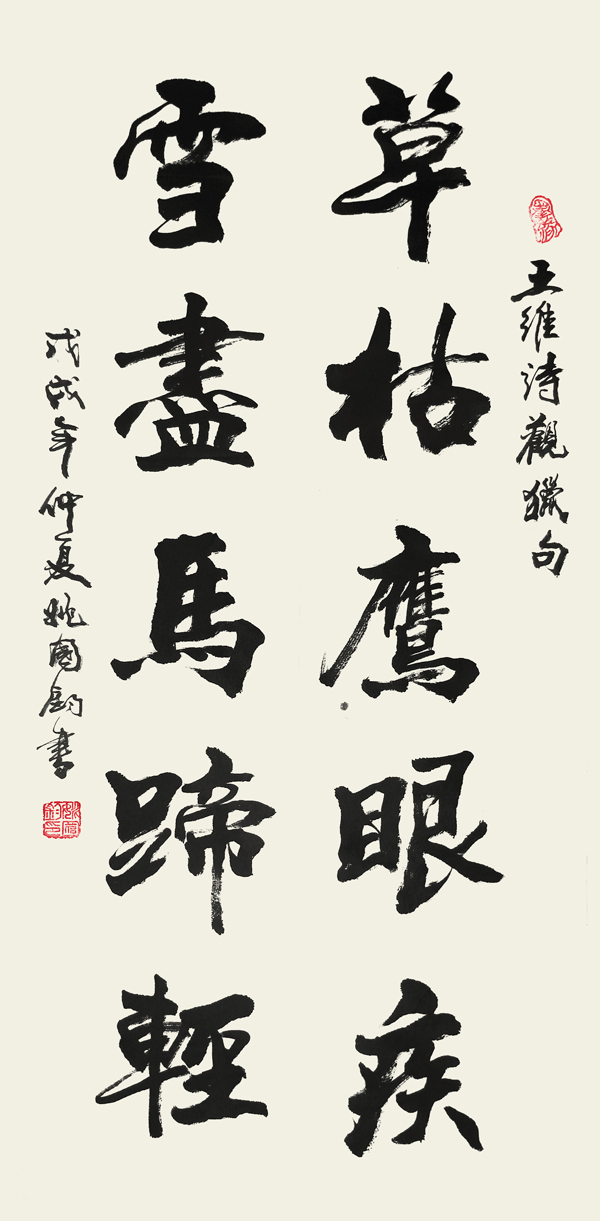 王維詩觀獵句
草枯鷹眼疾
雪盡馬蹄輕
戊戌年仲夏姚國鈞書